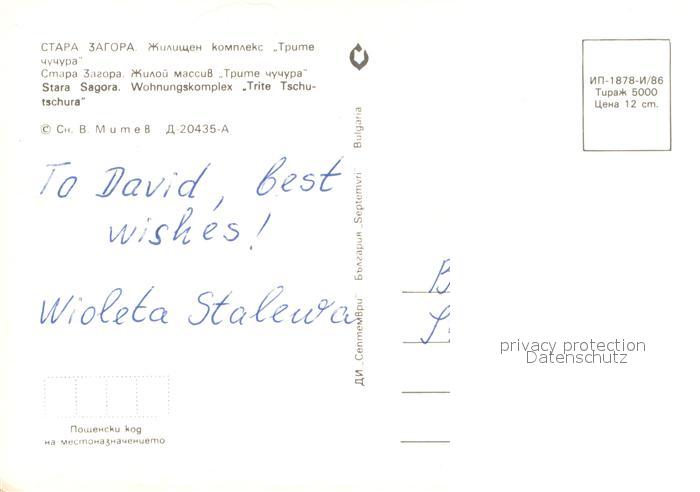 СТАРА ЗАГОРА. Жилищен комплекс „Трите
чучура"
Стара Загора. Жилой массив „Трите чучура"
Stara Sagora. Wohnungskomplex „Trite Tschu-
tschura"
© Сн. В. Митев Д-20435-А
To David, best
wishes!
Wioleta Stalewa
Пощенски код
на местоназначението
ДИ „Септември" България „Septemvri" Bulgaria
ИП-1878-И/86
Тираж 5000
Цена 12 ст.
privacy protection
Datenschutz